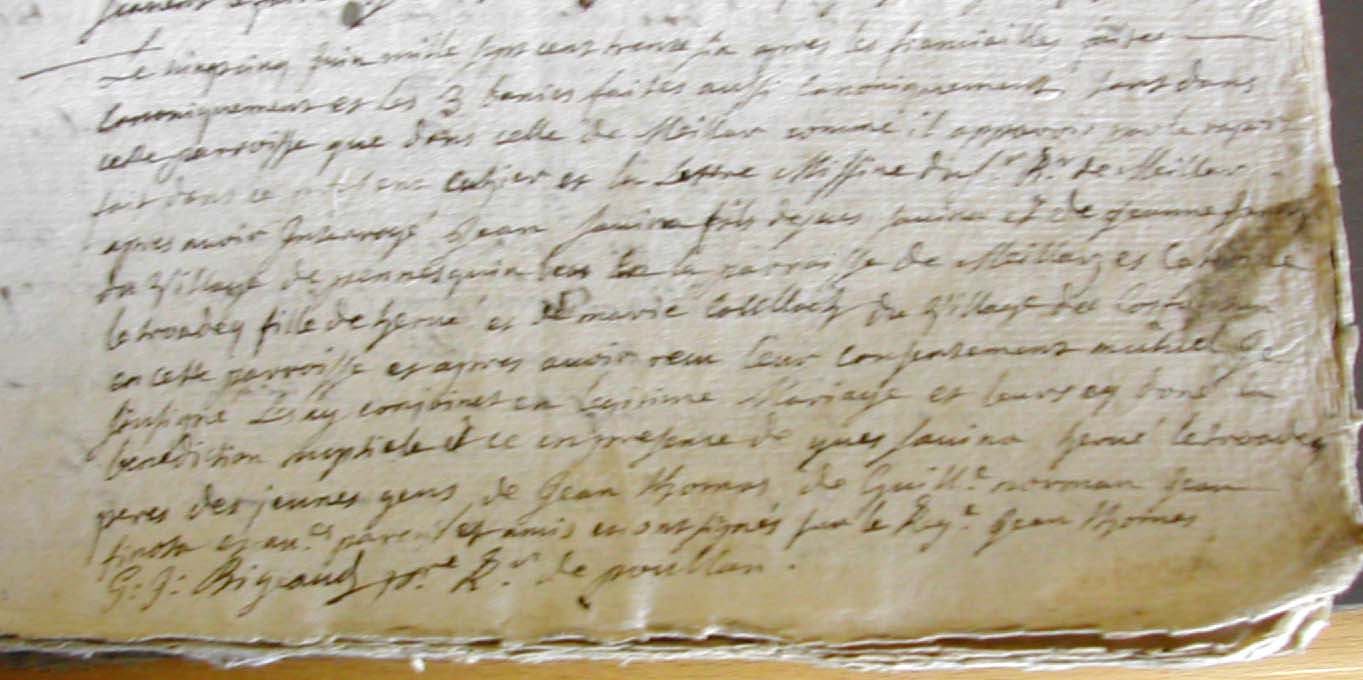 Le vingcinq Juin mille sept cent trente six apres les fianciailles faites
canoniquement et les 3 banies faites aussi canoniquement tant dans
cette parroisse que dans celle de Meillar comme il apparoir par le raport
fait dans ce present cahier et la Lettre Missive du Sr. Rr. de Meillar
apres avoir Interrogé Jean Savina fils de yves Savina et de jeanne
du Village de pennesquin en la parroisse de Meillar, et Catherine
le troadeq fille de hervé et de marie Colilloch du Village de
en cette parroisse et apres avoir receu leur consentement mutuel Je
soussigne Les ay conjoinct en Legitime Mariage et leurs ay doné la
benediction nuptiale et ce en presence de yves Savina hervé letroadeq
peres des jeunes gens de Jean thomas, de Guille. norman Jean
finota et aues. parens et amis et ont signés sur le Rege. Jean thomas
G: J: Bigeaud ptre Rr. de poullan.